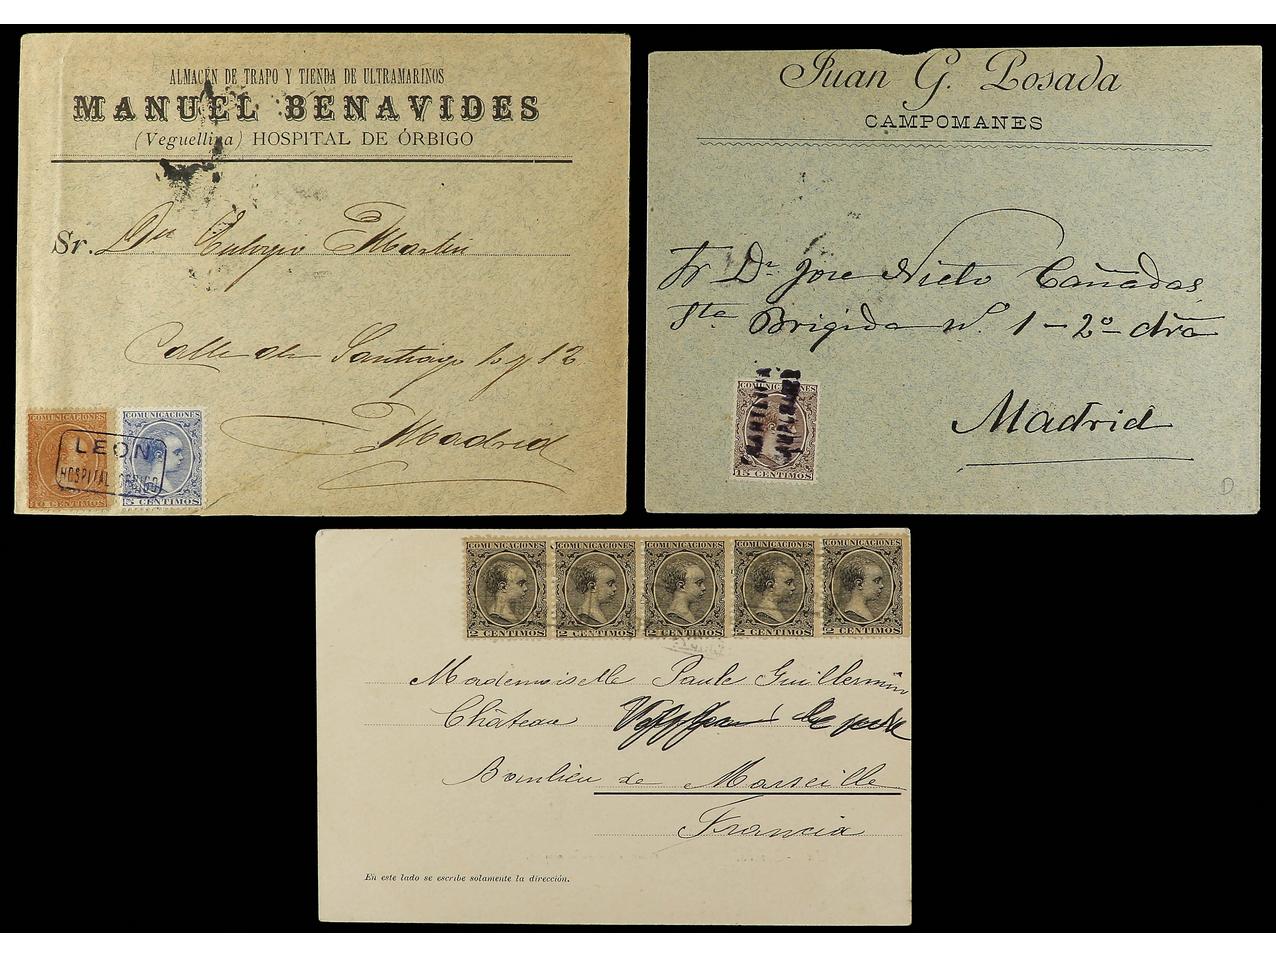 ALMACÉN DE TRAPO Y TIENDA DE ULTRAMARINOS
MANUEL BENAVIDES
(Veguellina) HOSPITAL DE ÓRBIGO
Sr. Dn Eulogio Martin
Calle de Santiago 10 y 12
Madrid
COMUNICACIONES
10 CENTIMOS
COMUNICACIONES
5 CENTIMOS
LEON
HOSPITAL ORBIGO
Juan G. Posada
CAMPOMANES
Sr Dn Jose Nieto Cañadas
Sta Brigida nº 1 - 2º dra
Madrid
COMUNICACIONES
15 CENTIMOS
D
COMUNICACIONES COMUNICACIONES COMUNICACIONES COMUNICACIONES COMUNICACIONES
2 CENTIMOS 2 CENTIMOS 2 CENTIMOS 2 CENTIMOS 2 CENTIMOS
Mademoiselle Paule Guillermin
Château
de Marseille
Francia
En este lado se escribe solamente la dirección.